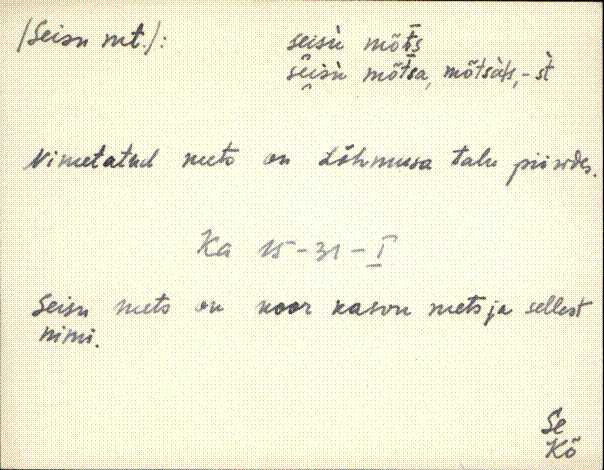 /Seisu mt./: seisù mõt̄s
sèisù mõt̄sa, mõtsàhe, -st̀
Nimetatud mets on Lõhmusa talu piirides.
Ka 15-31-I
Seisu mets on noor kasvu mets ja sellest
nimi.
Se
Kõ